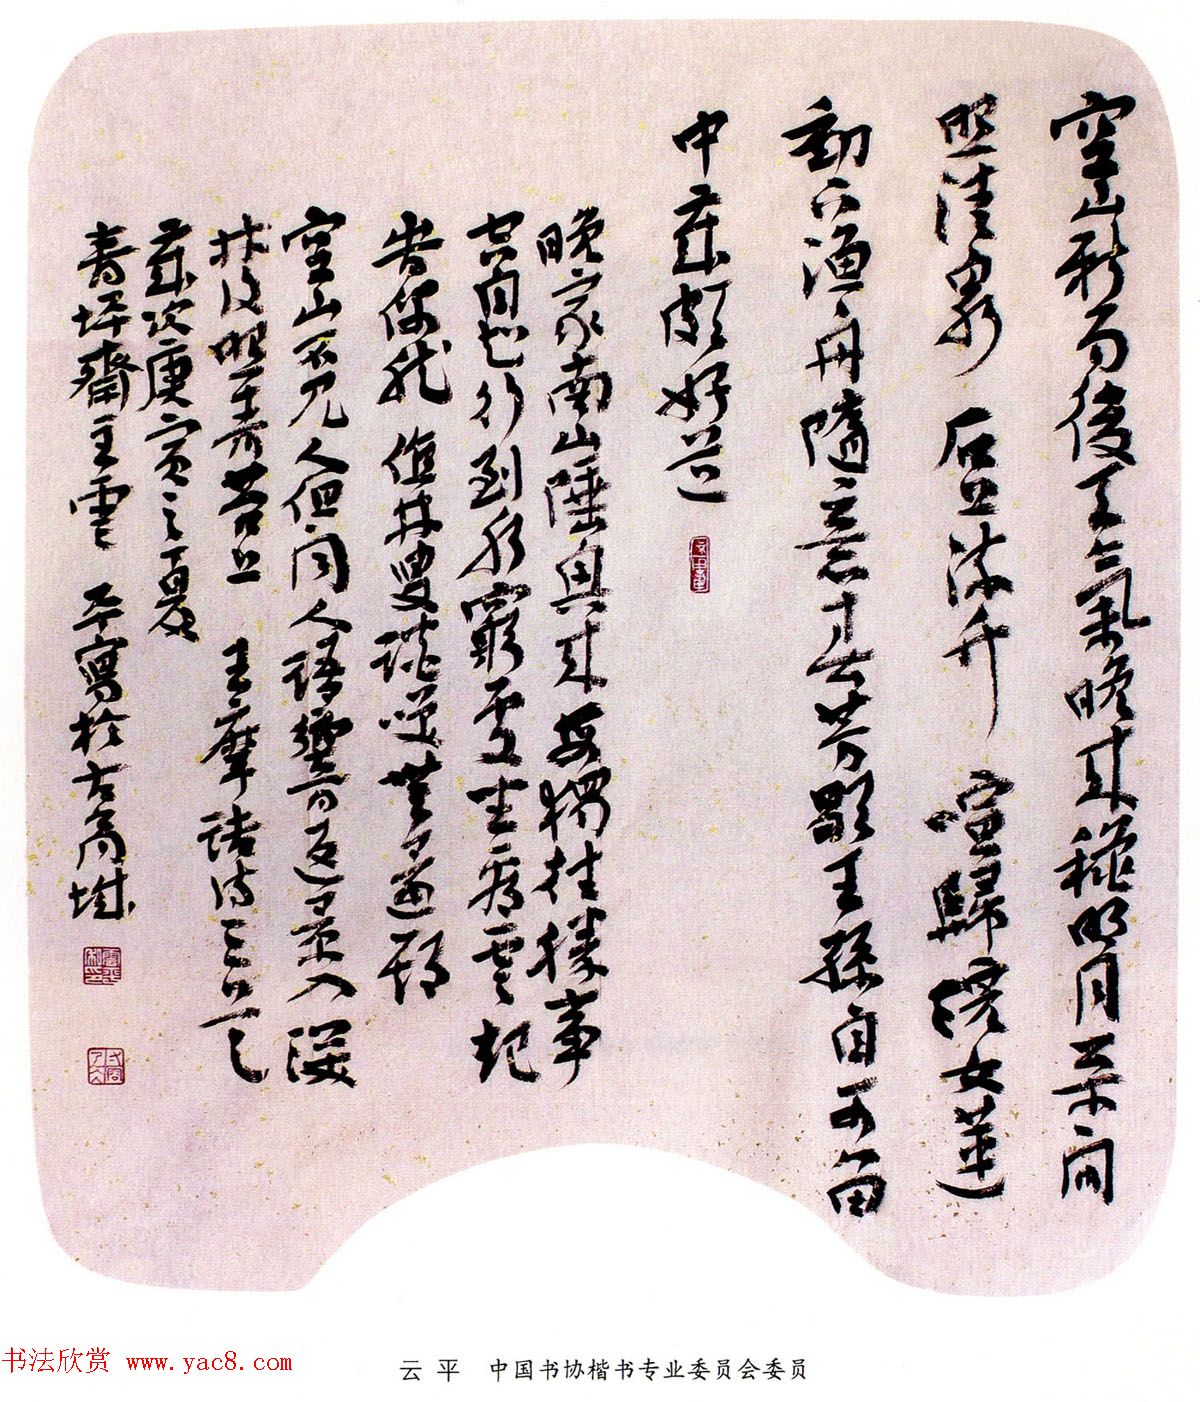 空山新雨後天氣晚來穐明月枩间
照清泉石上流竹喧歸浣女蓮
動下漁舟隨意春芳歇王孫自可留
中歲頗好道
晚家南山陲興來每獨往勝事
空自知行到水窮處坐看雲起
時偶然值林叟談笑無還期
空山不見人但聞人語響返景入深
林復照青苔上 王摩詰詩三首
歲次庚寅之夏
青坪齋主雲平寫於古商城
书法欣赏 www.yac8.com
云平 中国书协楷书专业委员会委员